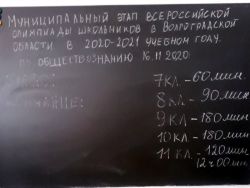 МУНИЦИПАЛЬНЫЙ ЭТАП ВСЕРОССИЙСКОЙ
ОЛИМПИАДЫ ШКОЛЬНИКОВ В ВОЛГОГРАДСКОЙ
ОБЛАСТИ В 2020-2021 УЧЕБНОМ ГОДУ
ПО ОБЩЕСТВОЗНАНИЮ 16.11.2020
7 КЛ. - 60 МИН
8 КЛ. - 90 МИН
9 КЛ - 180 МИН
10 КЛ - 180 МИН
11 КЛ. - 120 МИН